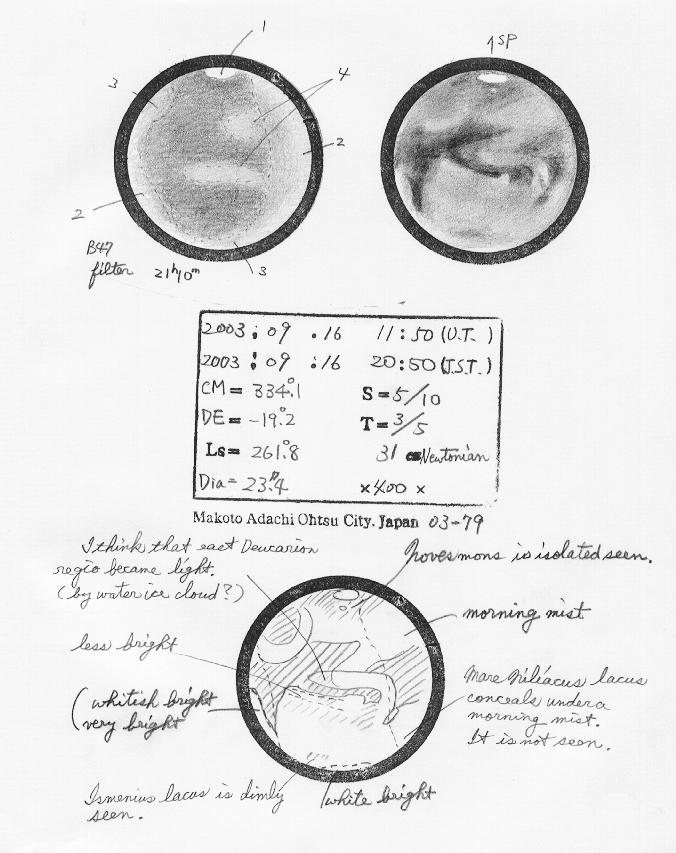 1
↑SP
3
4
2
2
3
B47
filter 21ʰ10ᵐ
2003 : 09 . 16 11 : 50 (U.T. )
2003 : 09 : 16 20 : 50 (J.S.T. )
CM = 334°.1 S = 5/10
DE = -19°.2 T = 3/5
Ls = 261°.8 31 Newtonian
Dia = 23".4 ×400 ×
Makoto Adachi Ohtsu City. Japan 03-79
I think that east Deucarion
regio became light.
( by water ice cloud ? )
Novesmons is isolated seen.
morning mist
less bright
( whitish bright
very bright
Mare Niliacus lacus
conceals under a
morning mist.
It is not seen.
Ismenius lacus is dimly
seen.
white bright